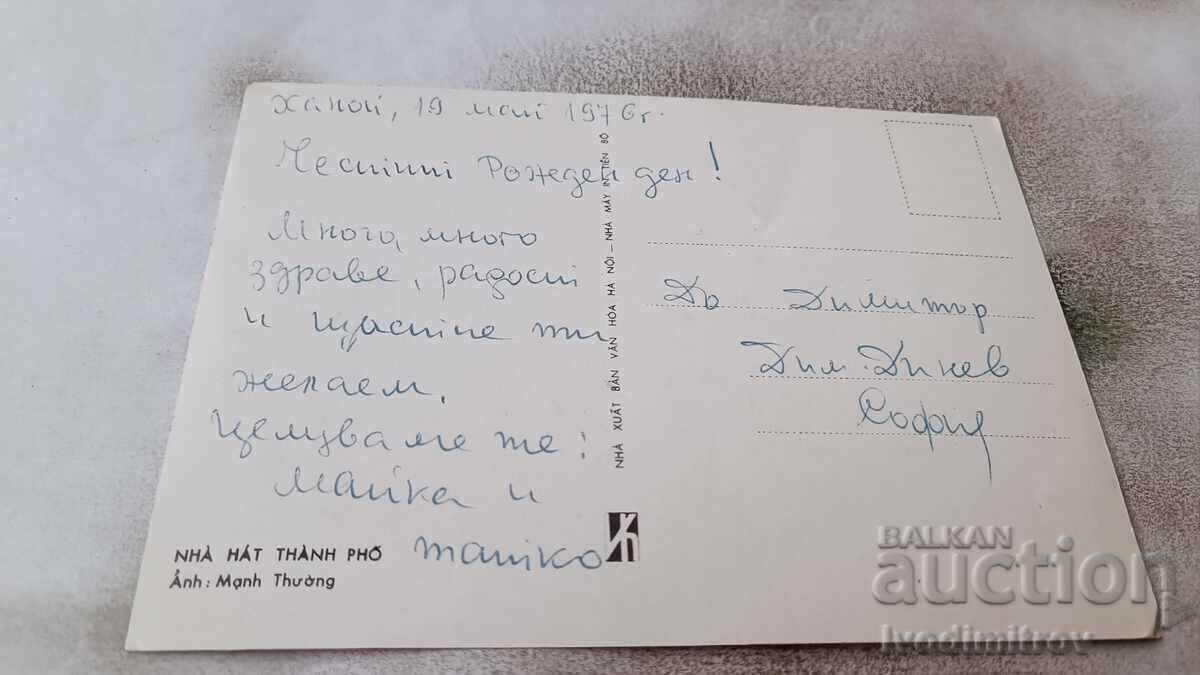 Ханой, 19 май 1976 г.
Честит Рожден ден!
Много, много
здраве, радост
и щастие ти
желаем.
Целуваме те:
Майка и
татко
NHÀ HÁT THÀNH PHỐ
Ảnh: Mạnh Thường
NHÀ XUẤT BẢN VĂN HÓA HÀ NỘI – NHÀ MÁY IN TIẾN BỘ
До Димитър
Дим. Динев
София
BALKAN
auction
Ivodimitrov